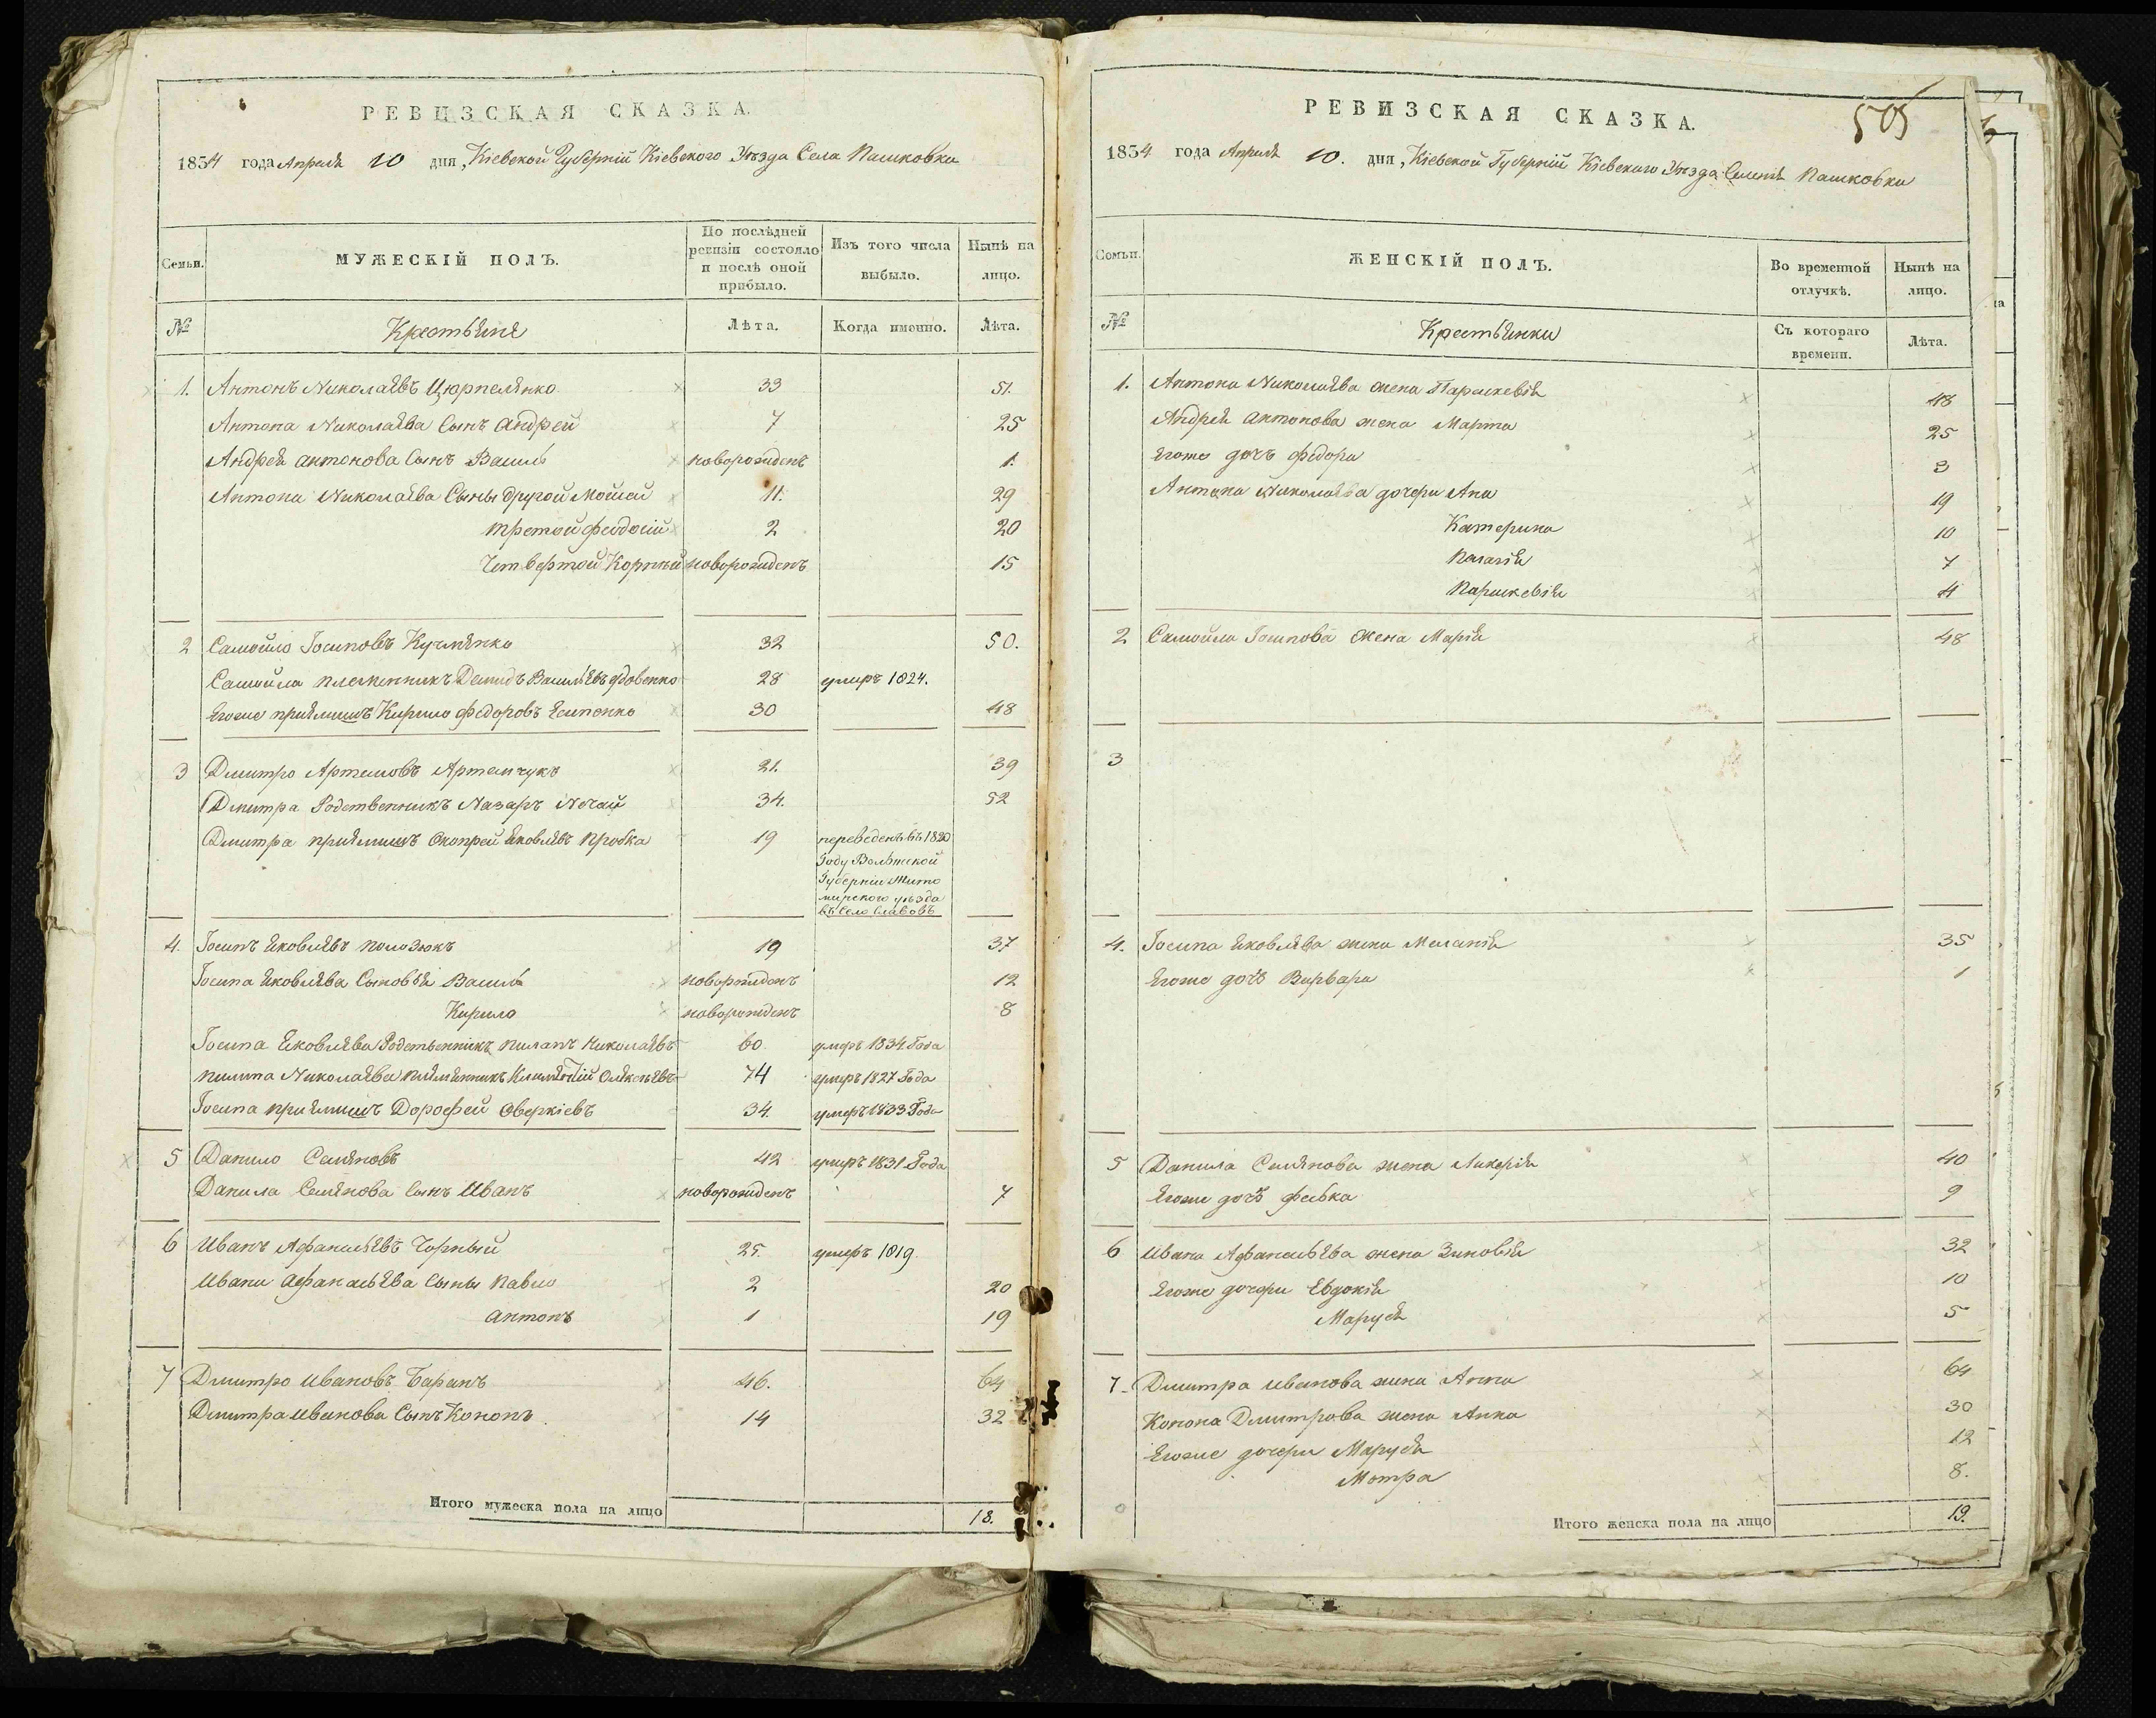 РЕВИЗСКАЯ СКАЗКА.
1834 года Апреля 10 дня, Кіевской Губерніи Кіевского Уѣзда Села Пашковки
Семьи.
МУЖЕСКІЙ ПОЛЪ.
По послѣдней ревизіи состояло и послѣ оной прибыло.
Изъ того числа выбыло.
Нынѣ на лицо.
№
Крестьяне
Лѣта.
Когда именно.
Лѣта.
1. Антонъ Николаевъ Цюрпеленко 33 51.
Антона Николаева Сынъ Андрей 7 25
Андрея Антонова Сынъ Василь новорожденъ 1.
Антона Николаева Сыны другой Мойсей 11. 29
третой Феодосій 2 20
Четвертой Корней новорожденъ 15
2 Самойло Іосиповъ Кучменко 32 50.
Самойла племенникъ Демидъ Васильевъ 28 умеръ 1824.
Егоже пріемишъ Кирило Федоровъ Есипенко 30 48
3 Дмитро Артемовъ Артемчукъ 21. 39
Дмитра Родственникъ Назаръ Нечай 34. 52
Дмитра пріемишъ Онопрей Яковлевъ Пробка 19 переведенъ въ 1820
Году Волынской
Губерніи Жито
мирского уѣзда
въ Село Славовъ
4. Іосипъ Яковлевъ Полозюкъ 19 37
Іосипа Яковлева Сыновья Василь новорожденъ 12
Кирило новорожденъ 8
Іосипа Яковлева Родственникъ Пилипъ Николаевъ 60. умеръ 1834 Года
Пилипа Николаева племенникъ Климентій 74 умеръ 1827 Года
Іосипа пріемишъ Дорофей Оверкіевъ 34. умеръ 1833 Года
5 Данило Семеновъ 42 умеръ 1831 Года
Данила Семенова Сынъ Иванъ новорожденъ 7
6 Иванъ Афанасьевъ Чорный 25. умеръ 1819.
Ивана Афанасьева Сыны Павло 2 20
Антонъ 1 19
7 Дмитро Ивановъ Баранъ 46. 64
Дмитра Иванова Сынъ Кононъ 14 32
Итого мужеска пола на лицо 18.
РЕВИЗСКАЯ СКАЗКА.
505
1834 года Апреля 10. дня, Кіевской Губерніи Кіевского Уѣзда Пашковки
Семьи.
ЖЕНСКІЙ ПОЛЪ.
Во временной отлучкѣ.
Нынѣ на лицо.
№
Крестьянки
Съ котораго времени.
Лѣта.
1. Антона Николаева жена Параскевія 48
Андрея Антонова жена Марта 25
Егоже дочъ Федора 3
Антона Николаева дочери Анна 19
Катерина 10
Палагія 7
Параскевія 4
2 Самойла Іосипова жена Марія 48
3
4. Іосипа Яковлева жена Меланія 35
Егоже дочъ Варвара 1
5 Данила Семенова жена Ликерія 40
Егоже дочъ Февка 9
6 Ивана Афанасьева жена Зиновія 32
Егоже дочери Евдокія 10
Маруся 5
7. Дмитра Иванова жена Анна 64
Конона Дмитрова жена Анна 30
Егоже дочери Маруся 12
Мотра 8.
Итого женска пола на лицо 19.